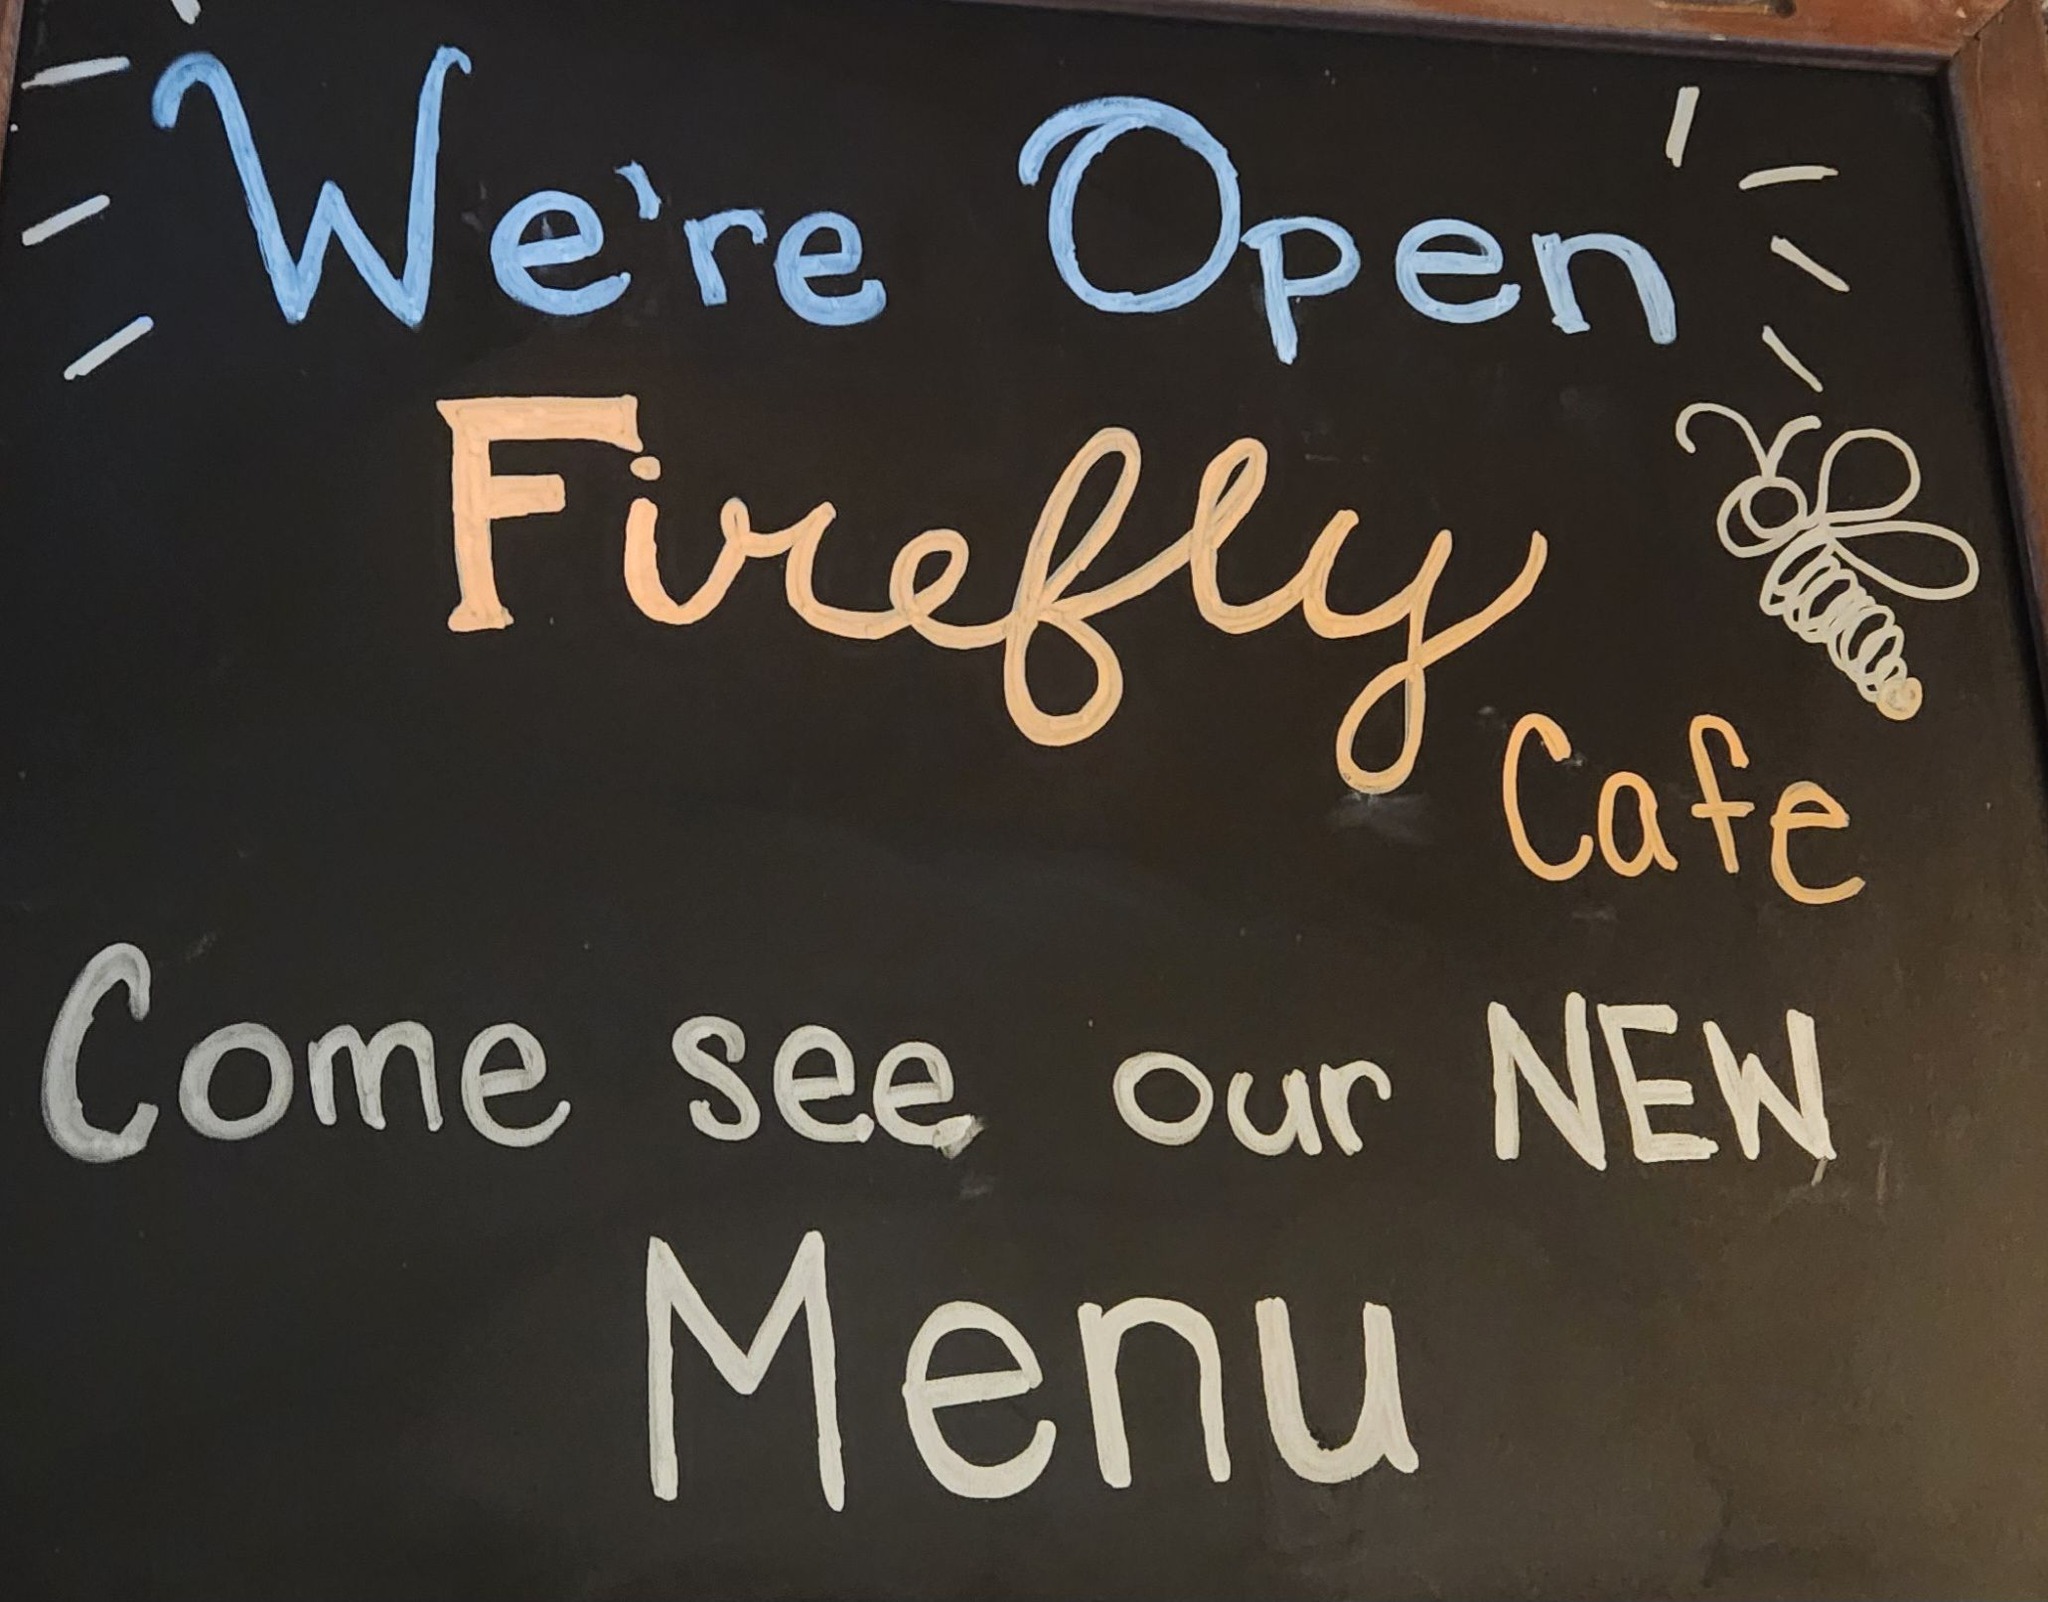 We're Open
Firefly
Cafe
Come see our NEW
Menu